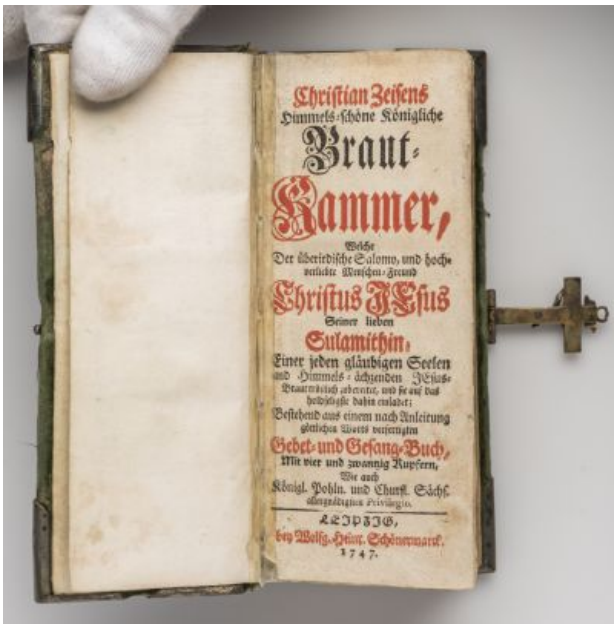 Christian Zeisens
Himmels-schöne Königliche
Braut-
Kammer,
Welche
Der überirdische Salomo, und hoch-
verliebte Menschen-Freund
Christus JEsus
Seiner lieben
Sulamithin,
Einer jeden gläubigen Seelen
und Himmels-ächzenden JEsus-
Braut zubereitet, und sie auf das
holdseligste dahin einladet;
Bestehend aus einem nach Anleitung
göttlichen Worts verfertigten
Gebet- und Gesang-Buch,
Mit vier und zwantzig Kupfern,
Wie auch
Königl. Pohln. und Churfl. Sächs.
allergnädigsten Privilegio.
LEIPZIG,
bey Wolfg. Heinr. Schönermarck.
1747.